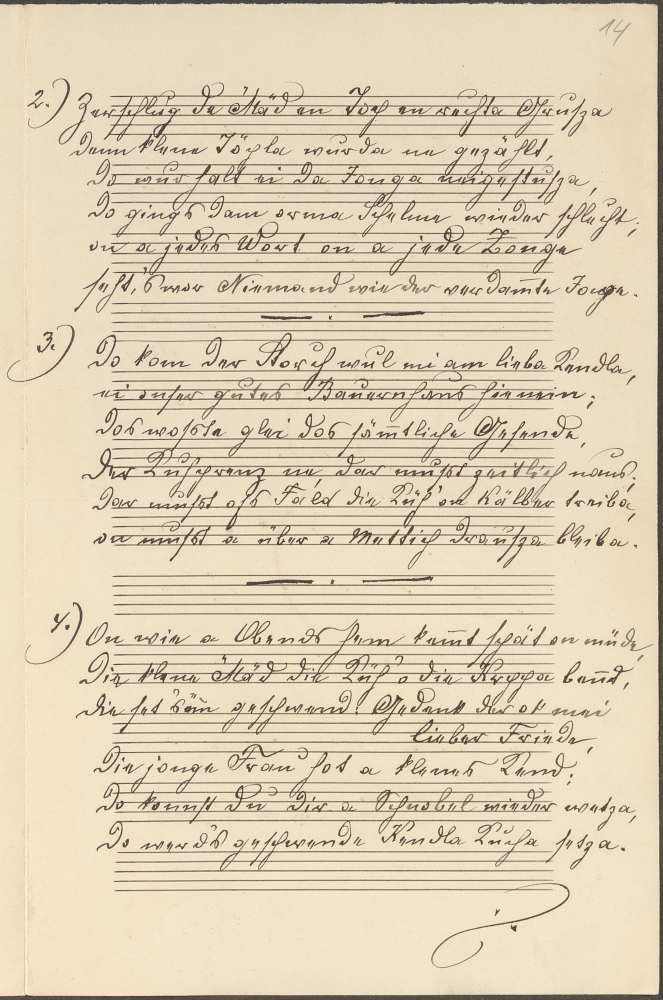 14
2.) Zerschlug de Mäd en Top en rechta Grußa
denn klene Töpla wurda ne gezählt,
Do wur halt ei Da Jonga neigestußa,
Do gings dam orma Schelme wieder schlecht;
on a jedes Wort on a jede Zonge
seht,'s wor Niemand wie der verdam̅te Jonge.
3.) Do kom der Storch wul mi am lieba Kendla,
ei onser gutes Bauernhaus hienein;
Dos woßte glei dos säm̅tliche Gesende,
Der Lusche ne, dar mußt zeitlich naus;
Dar mußt ofs Fald die Küh on Kälber treiba,
on mußt a über a Mettich draußa bleiba.
4.) On wie a Obends hem kem̅t spät on müde,
Die klene Mäd die Küh o die Kreppa bend,
die set geschwend: Gedenk der ok mei
lieber Friede,
Die jonge Frau hot a klenes Kend;
Do konnst du dir a Schnobel wieder wetza,
Do werd's geschwende Kendla Kucha setza.